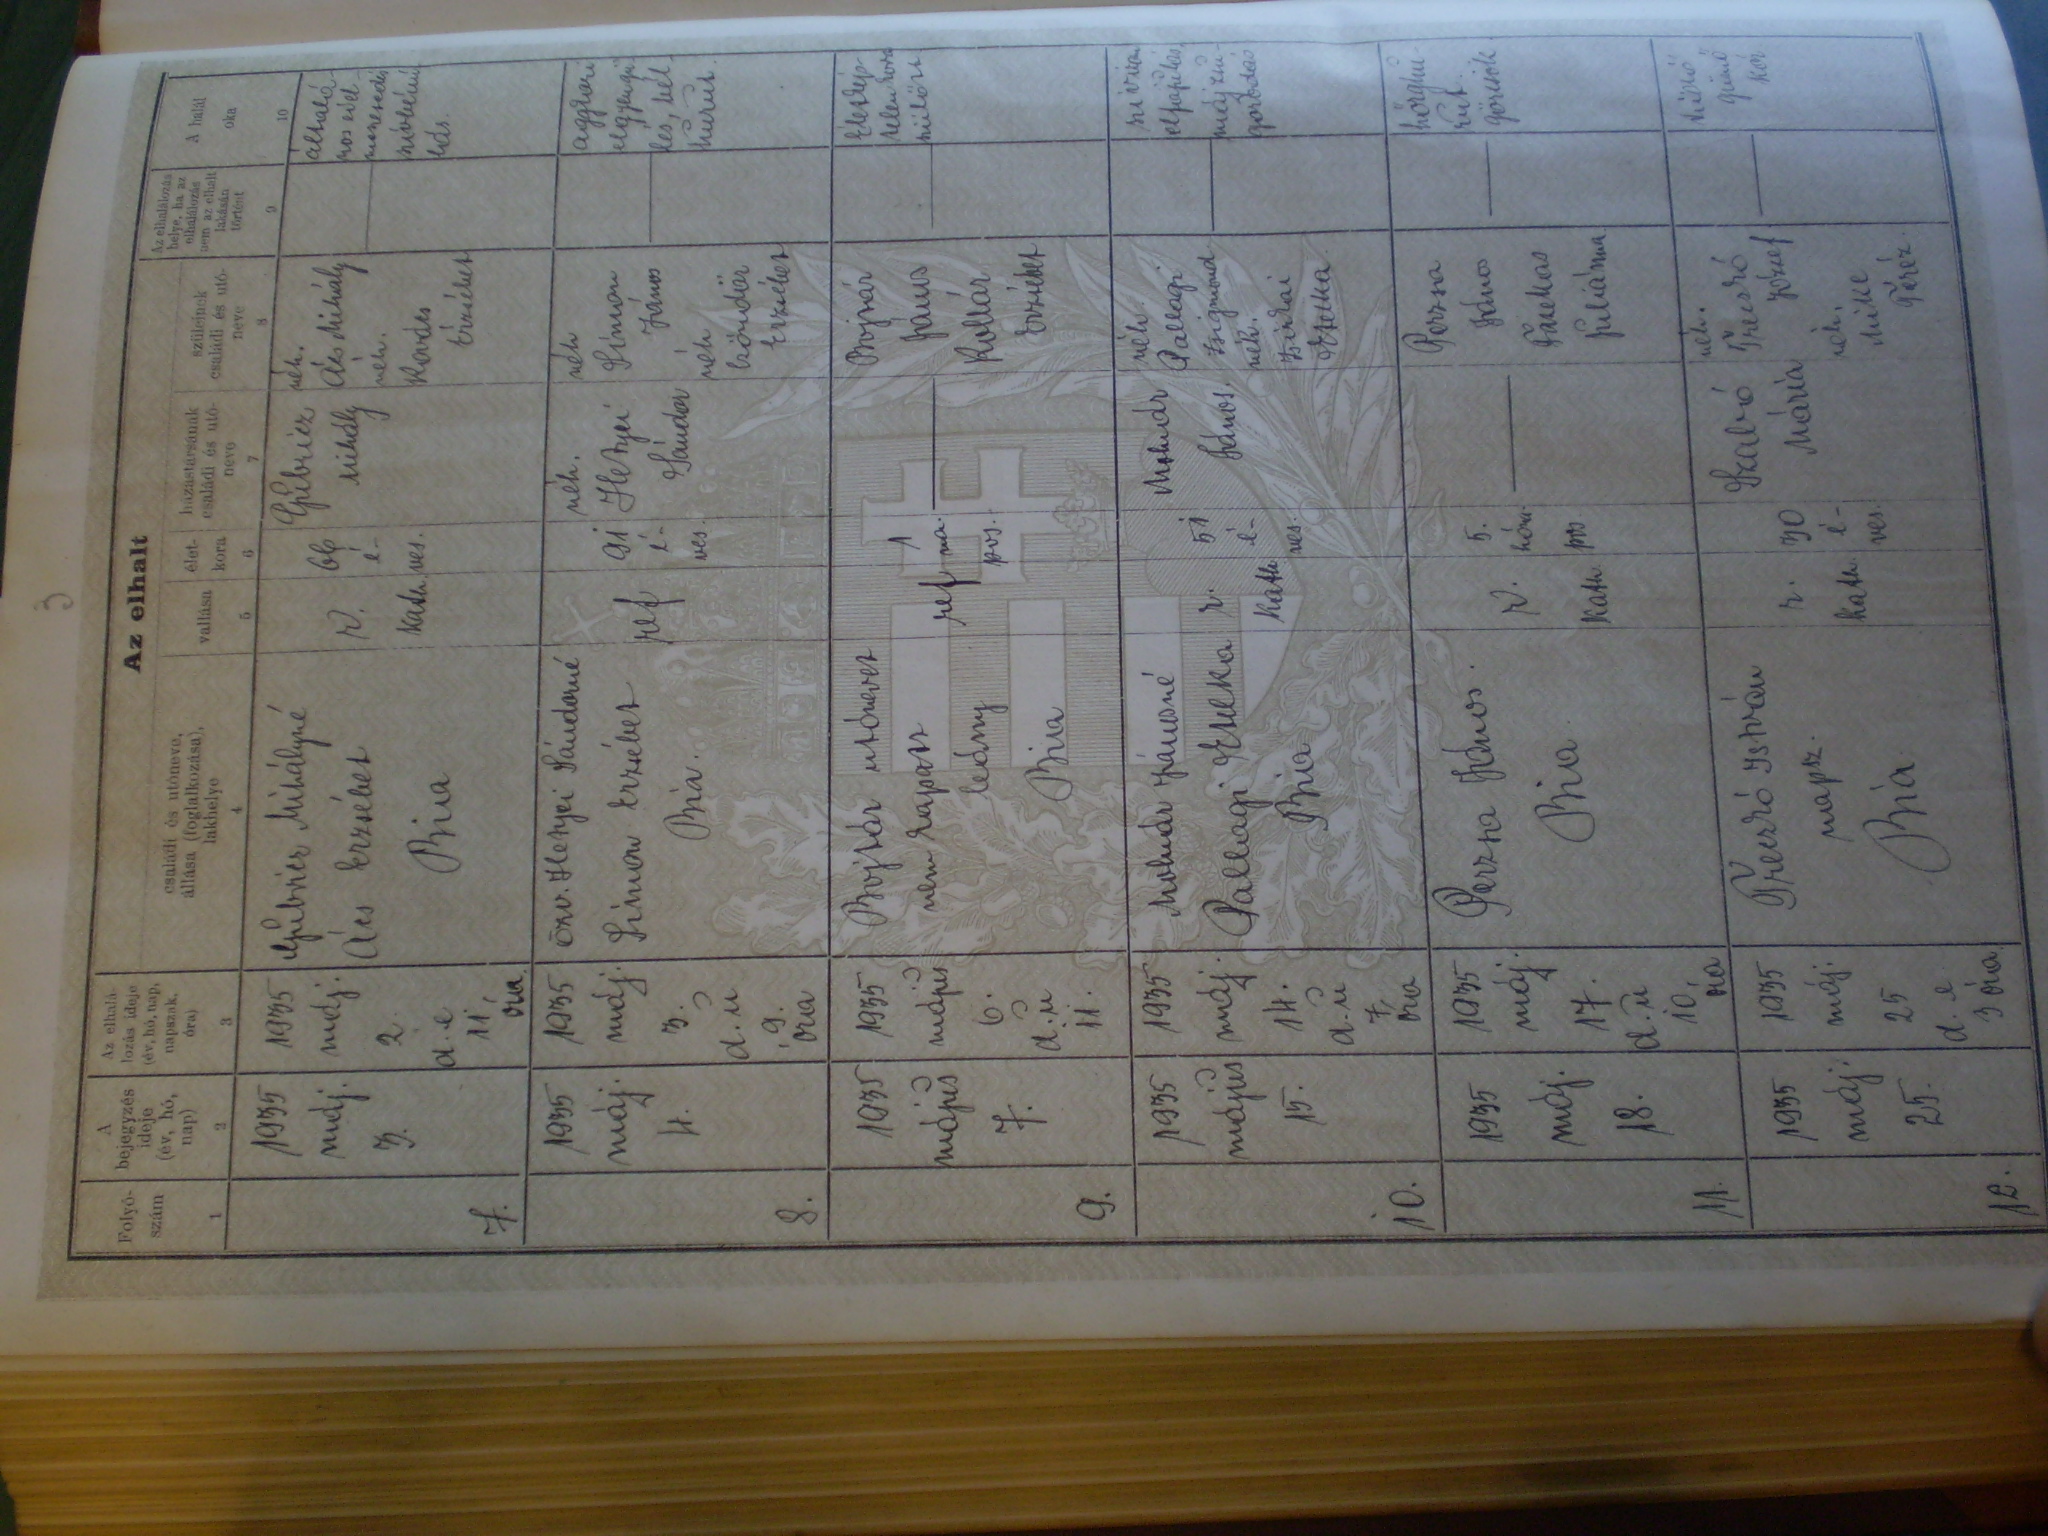 3
Az elhalt
Folyó-
szám
A
bejegyzés
ideje
(év, hó,
nap)
Az elhalá-
lozás ideje
(év, hó, nap,
napszak,
óra)
családi és utóneve,
állása (foglalkozása),
lakhelye
vallása
élet-
kora
házastársának
családi és utó-
neve
szüleinek
családi és utó-
neve
Az elhalálozás
helye, ha az
elhalálozás
nem az elhalt
lakásán
történt
A halál
oka
1
2
3
4
5
6
7
8
9
10
7.
1935
máj.
3.
1935
máj.
2.
d. e
11
óra
Mihályné
Ács Erzsébet
Bia
r.
kath.
66
é-
ves.
Mihály
néh.
Ács Mihály
néh.
Kovács
Erzsébet
általá-
nos
8.
1935
máj.
4.
1935
máj.
3.
d. u
9.
óra
özv. Hetyei Sándorné
Simon Erzsébet
Bia.
ref
91
é-
ves.
néh.
Hetyei
Sándor
néh
Simon
János
néh
Erzsébet
aggkori
elgyengü-
lés, bél
hurut.
9.
1935
május
7.
1935
május
6.
d. u
11.
Bojtár utónevet
nem kapott
leány
Bia
ref
1
na-
pos.
Bojtár
János
Kollár
Erzsébet
életkép-
telen kora
szülött
10.
1935
május
15.
1935
máj.
14.
d. u
7.
óra
Molnár Jánosné
Pallagi Etelka
Bia
r.
kath
51
é-
ves.
Molnár
János.
néh.
Pallagi
Zsigmond
néh.
Etelka
11.
1935
máj.
18.
1935
máj.
17.
d. u
10,
óra
Perzsa János.
Bia
r.
kath
5.
hóna-
pos
Perzsa
János
Farkas
Juliánna
hörghu-
rut.
görcsök.
12.
1935
máj.
25.
1935
máj.
25
d. e
3 óra
István
napsz.
Bia
r.
kath
30
é-
ves
Szabó
Mária
néh.
József
néh.
Mike
Teréz.
tüdő
gümő
kór